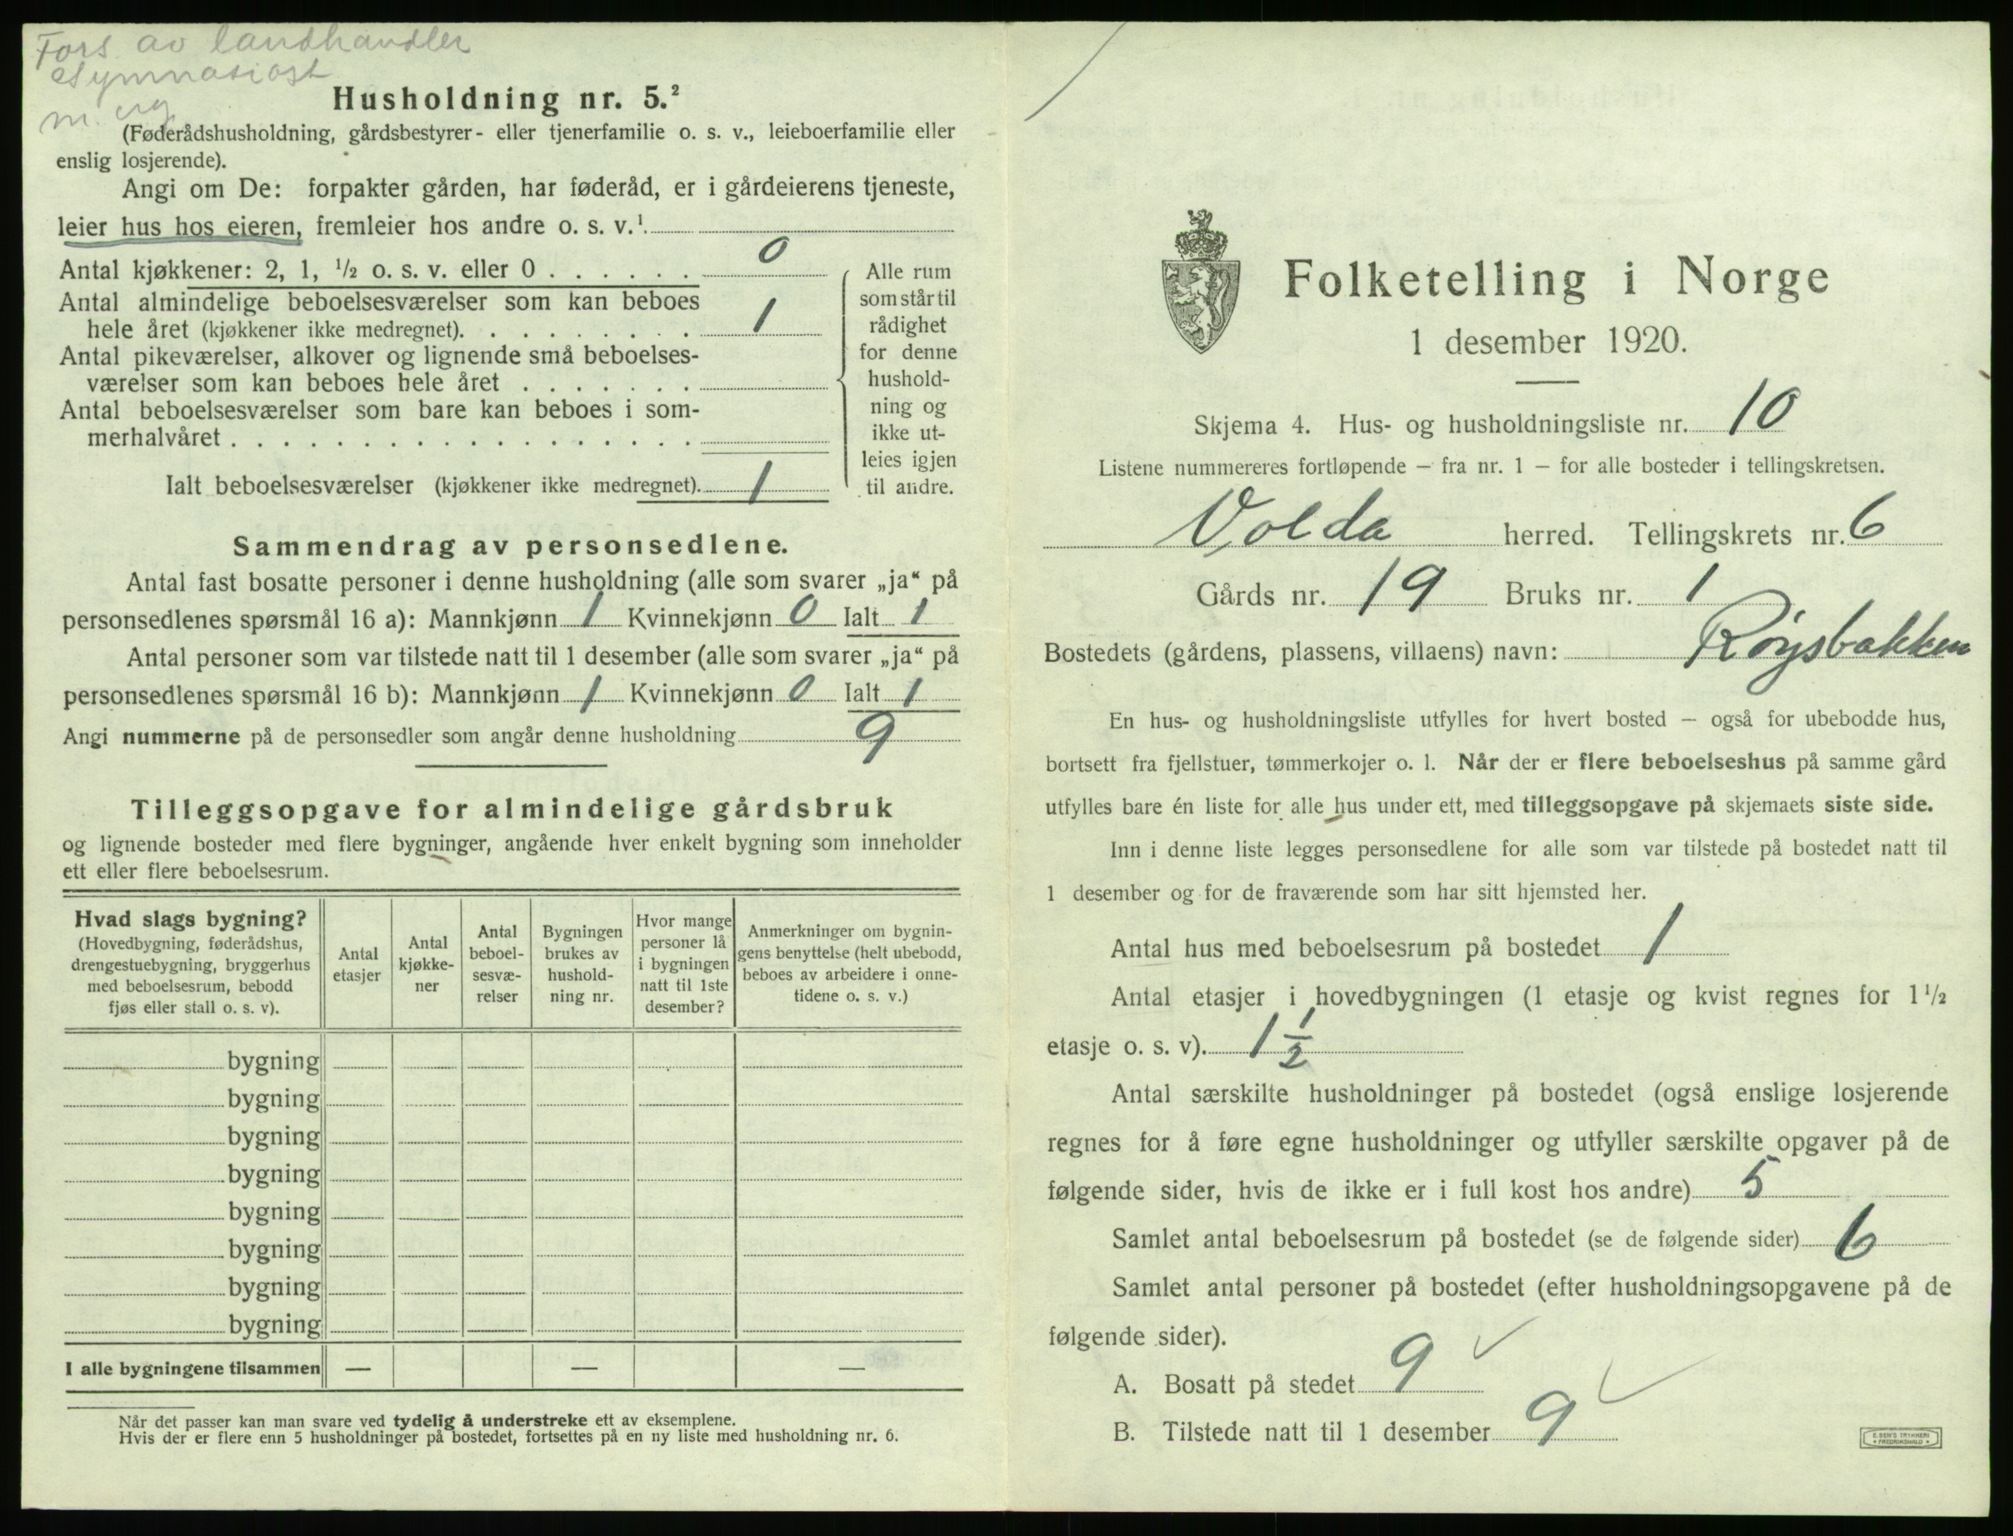 Fors. av landhandler
Gymnasiast
m. eg.
Husholdning nr. 5.²
(Føderådshusholdning, gårdsbestyrer- eller tjenerfamilie o. s. v., leieboerfamilie eller
enslig losjerende).
Angi om De: forpakter gården, har føderåd, er i gårdeierens tjeneste,
leier hus hos eieren, fremleier hos andre o. s. v.¹
Antal kjøkkener: 2, 1, ½ o. s. v. eller 0 . . . . . . 0
Antal almindelige beboelsesværelser som kan beboes
hele året (kjøkkener ikke medregnet). . . . . . . . . 1
Antal pikeværelser, alkover og lignende små beboelses-
værelser som kan beboes hele året . . . . . . .
Antal beboelsesværelser som bare kan beboes i som-
merhalvåret . . . . . . . . . . . . . . . . . .
Ialt beboelsesværelser (kjøkkener ikke medregnet). 1
Alle rum
som står til
rådighet
for denne
hushold-
ning og
ikke ut-
leies igjen
til andre.
Sammendrag av personsedlene.
Antal fast bosatte personer i denne husholdning (alle som svarer „ja“ på
personsedlenes spørsmål 16 a): Mannkjønn 1 Kvinnekjønn 0 Ialt 1
Antal personer som var tilstede natt til 1 desember (alle som svarer „ja“ på
personsedlenes spørsmål 16 b): Mannkjønn 1 Kvinnekjønn 0 Ialt 1
Angi nummerne på de personsedler som angår denne husholdning 9
Tilleggsopgave for almindelige gårdsbruk
og lignende bosteder med flere bygninger, angående hver enkelt bygning som inneholder
ett eller flere beboelsesrum.
Hvad slags bygning?
(Hovedbygning, føderådshus,
drengestuebygning, bryggerhus
med beboelsesrum, bebodd
fjøs eller stall o. s. v).
Antal
etasjer
Antal
kjøkke-
ner
Antal
beboel-
sesvæ-
relser
Bygningen
brukes av
hushold-
ning nr.
Hvor mange
personer lå
i bygningen
natt til 1ste
desember?
Anmerkninger om bygnin-
gens benyttelse (helt ubebodd,
beboes av arbeidere i onne-
tidene o. s. v.)
bygning
bygning
bygning
bygning
bygning
bygning
bygning
bygning
I alle bygningene tilsammen — — —
Når det passer kan man svare ved tydelig å understreke ett av eksemplene.
Hvis der er flere enn 5 husholdninger på bostedet, fortsettes på en ny liste med husholdning nr. 6.
Folketelling i Norge
1 desember 1920.
Skjema 4. Hus- og husholdningsliste nr. 10
Listene nummereres fortløpende – fra nr. 1 – for alle bosteder i tellingskretsen.
Volda herred. Tellingskrets nr. 6
Gårds nr. 19 Bruks nr. 1
Bostedets (gårdens, plassens, villaens) navn: Røysbakken
En hus- og husholdningsliste utfylles for hvert bosted – også for ubebodde hus,
bortsett fra fjellstuer, tømmerkojer o. l. Når der er flere beboelseshus på samme gård
utfylles bare én liste for alle hus under ett, med tilleggsopgave på skjemaets siste side.
Inn i denne liste legges personsedlene for alle som var tilstede på bostedet natt til
1 desember og for de fraværende som har sitt hjemsted her.
Antal hus med beboelsesrum på bostedet 1
Antal etasjer i hovedbygningen (1 etasje og kvist regnes for 1½
etasje o. s. v). 1½
Antal særskilte husholdninger på bostedet (også enslige losjerende
regnes for å føre egne husholdninger og utfyller særskilte opgaver på de
følgende sider, hvis de ikke er i full kost hos andre) 5
Samlet antal beboelsesrum på bostedet (se de følgende sider) 6
Samlet antal personer på bostedet (efter husholdningsopgavene på de
følgende sider).
A. Bosatt på stedet 9 ✓
B. Tilstede natt til 1 desember 9 ✓